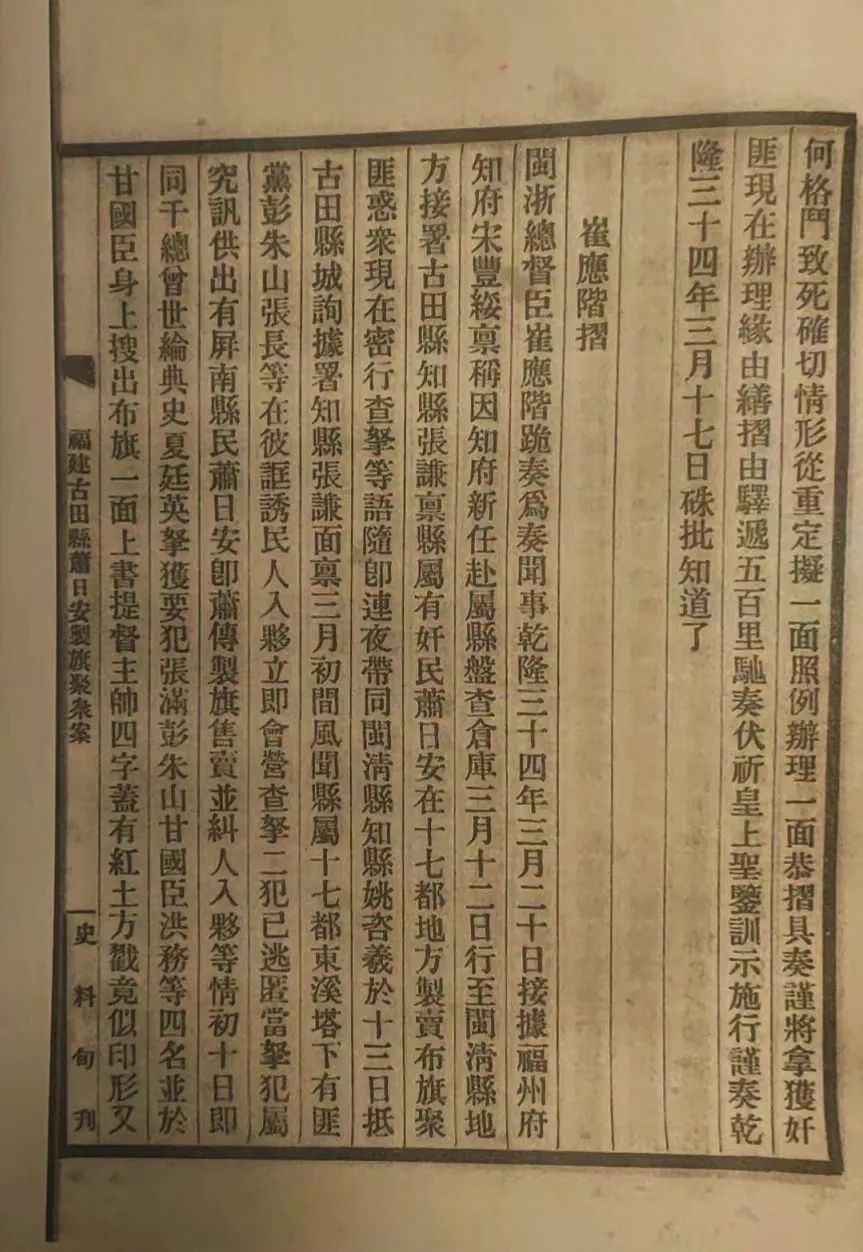 何格鬥致死確切情形從重定擬一面照例辦理一面恭摺具奏謹將拿獲奸
匪現在辦理緣由繕摺由驛遞五百里馳奏伏祈皇上聖鑒訓示施行謹奏乾
隆三十四年三月十七日硃批知道了
崔應階摺
閩浙總督臣崔應階跪奏爲奏聞事乾隆三十四年三月二十日接據福州府
知府宋豐綏稟稱因知府新任赴屬縣盤查倉庫三月十二日行至閩淸縣地
方接署古田縣知縣張謙稟縣屬有奸民蕭日安在十七都地方製賣布旗聚
匪惑衆現在密行查拏等語隨卽連夜帶同閩淸縣知縣姚咨義於十三日抵
古田縣城詢據署知縣張謙面稟三月初間風聞縣屬十七都東溪塔下有匪
黨彭朱山張長等在彼誆誘民人入夥立即會營查拏二犯已逃匿當拏犯屬
究訊供出有屏南縣民蕭日安卽蕭傳製旗售賣並糾人入夥等情初十日即
同千總曾世綸典史夏廷英拏獲要犯張滿彭朱山甘國臣洪務等四名並於
甘國臣身上搜出布旗一面上書提督主帥四字蓋有紅土方戳竟似印形又
福建古田縣蕭日安製旗聚衆案
史料旬刊